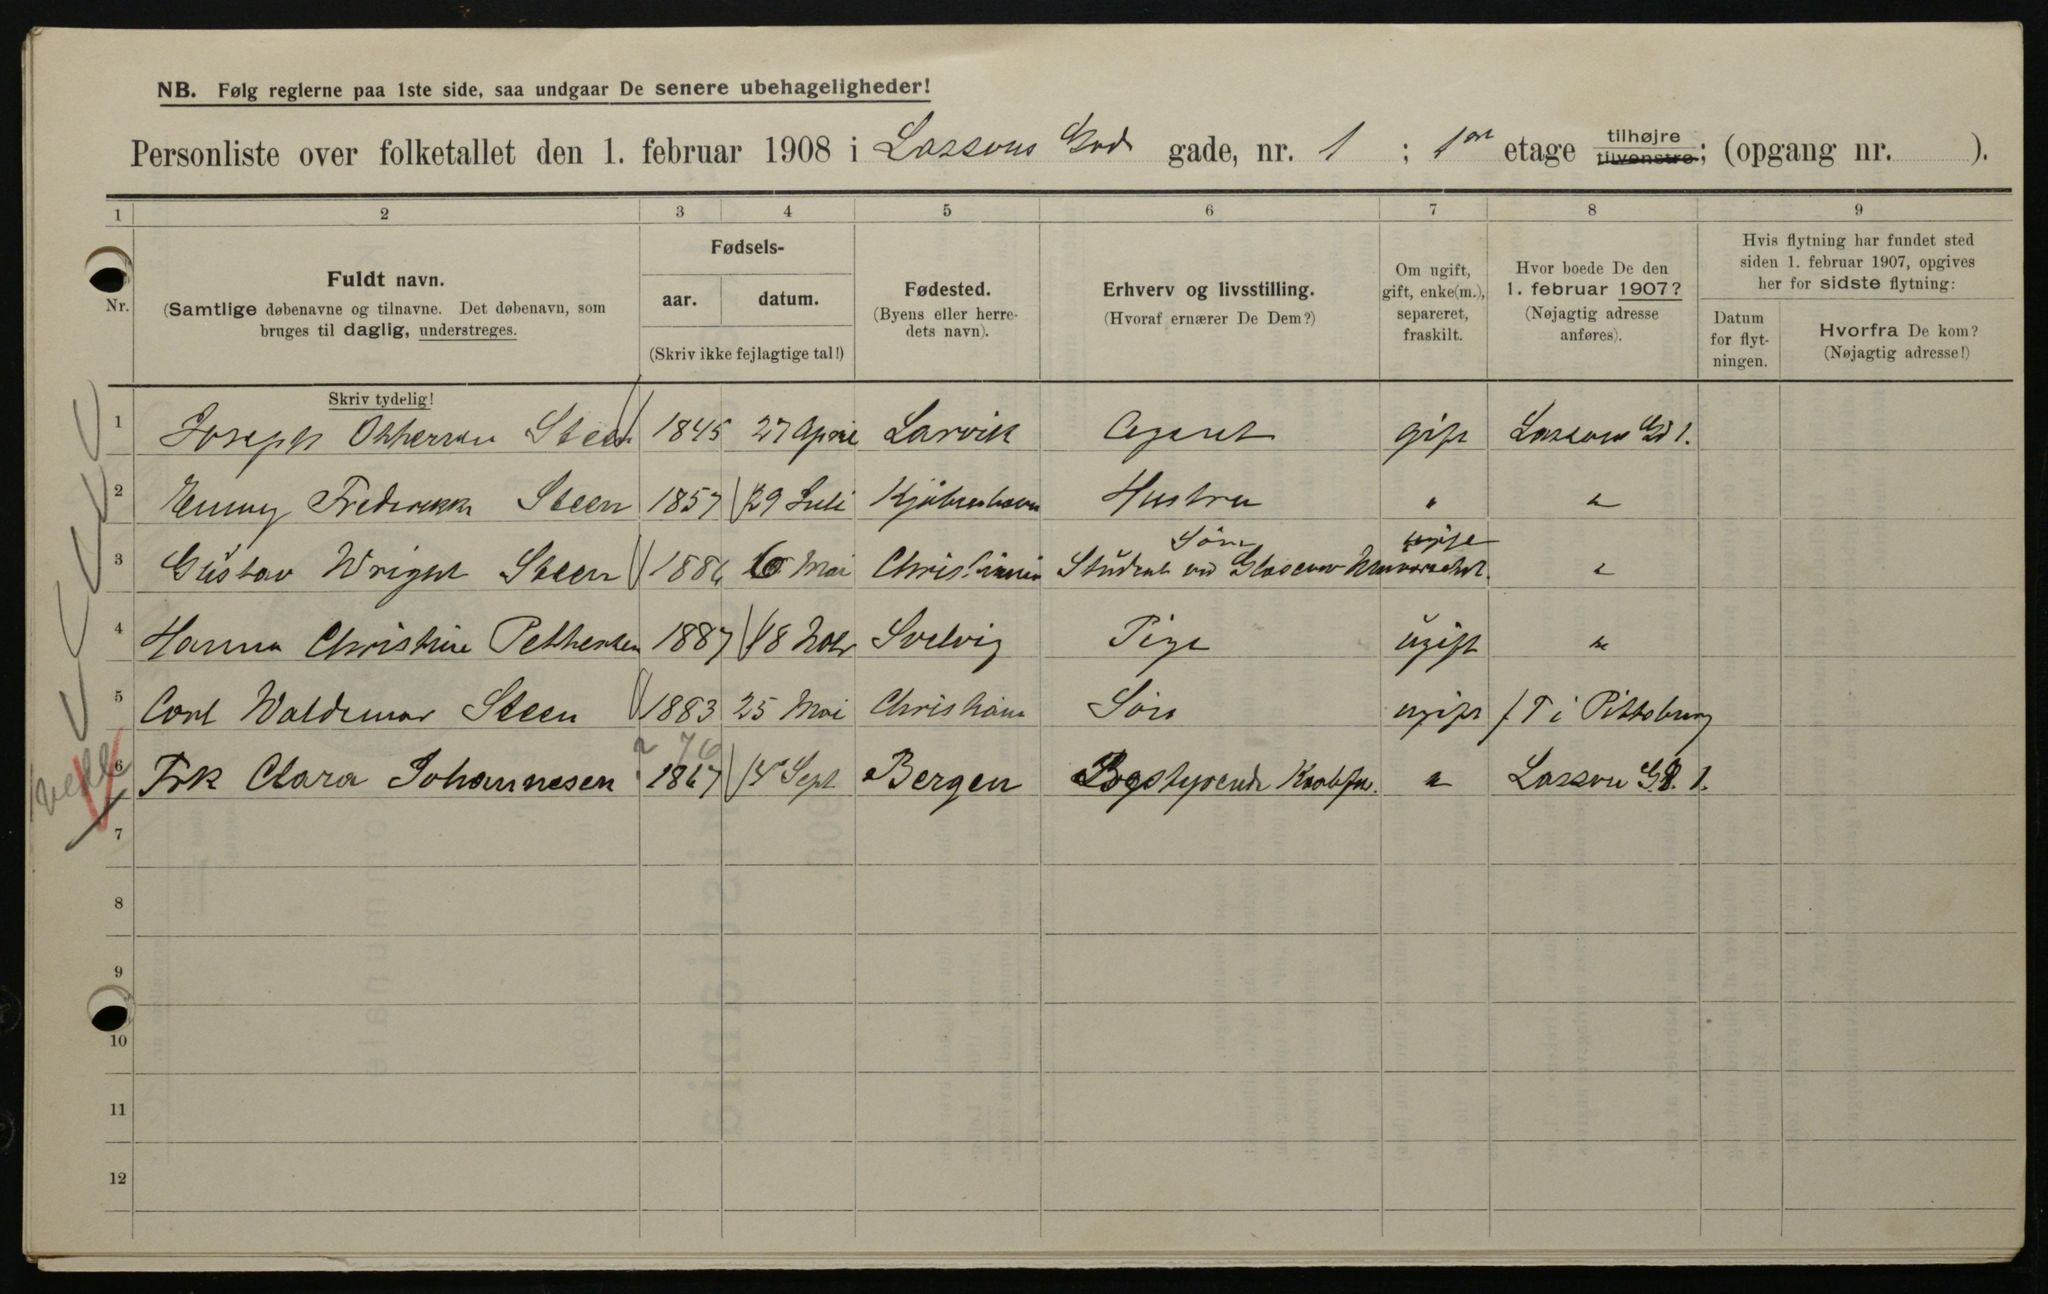 NB. Følg reglerne paa 1ste side, saa undgaar De senere ubehageligheder!
Personliste over folketallet den 1. februar 1908 i Lassons Gade gade, nr. 1 ; 1ste etage tilhøjre tilvenstre; (opgang nr. ).
1 2 3 4 5 6 7 8 9
Nr.
Fuldt navn.
(Samtlige døbenavne og tilnavne. Det døbenavn, som
bruges til daglig, understreges.
Skriv tydelig!
Fødsels-
aar. datum.
(Skriv ikke fejlagtige tal!)
Fødested.
(Byens eller herre-
dets navn).
Erhverv og livsstilling.
(Hvoraf ernærer De Dem?)
Om ugift,
gift, enke(m.),
separeret,
fraskilt.
Hvor boede De den
1. februar 1907?
(Nøjagtig adresse
anføres).
Hvis flytning har fundet sted
siden 1. februar 1907, opgives
her for sidste flytning:
Datum
for flyt-
ningen.
Hvorfra De kom?
(Nøjagtig adresse!)
1 Joseph Otterson Steen 1845 27 April Larvik Agent gift Lassons Gd 1.
2 Emmy Frederikke Steen 1857 29 Juli Kjøbenhavn Hustru " "
Søn ugift
3 Gustav Wright Steen 1886 6 Mai Christiania Student ved Glasgow Universitet. "
4 Hanna Christine Pettersen 1887 18 Novr Svelvig Pige ugift "
5 Carl Waldemar Steen 1883 25 Mai Christiania Søn ugift f T i Pittsburg
76
6 Frk Clara Johannesen 1867 14 Sept Bergen Bestyrende " Lasson Gd. 1.
7
8
9
10
11
12